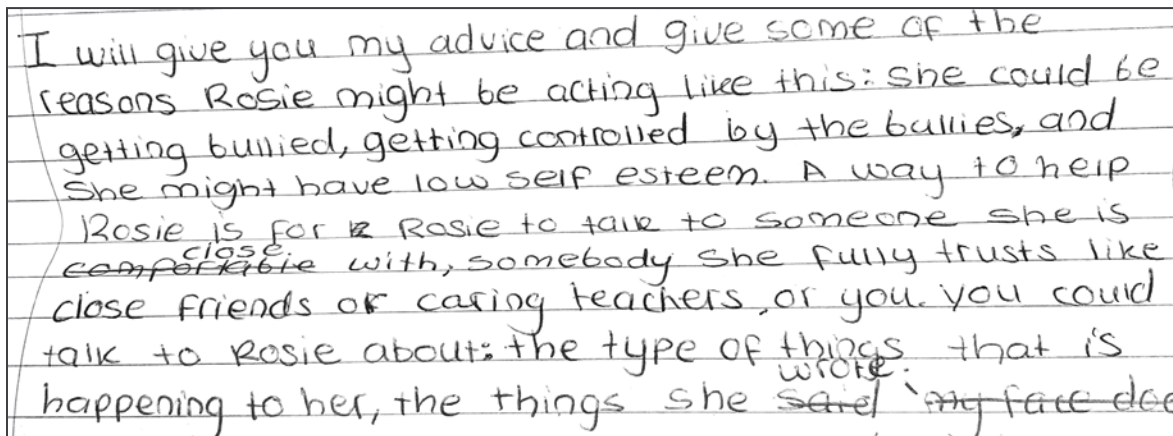 I will give you my advice and give some of the
reasons Rosie might be acting like this: She could be
getting bullied, getting controlled by the bullies, and
She might have low self esteem. A way to help
Rosie is for R Rosie to talk to someone she is
close
comfortable with, somebody She fully trusts like
close friends or caring teachers, or you. you could
talk to Rosie about: the type of things that is
wrote:
happening to her, the things she said 'my face doe